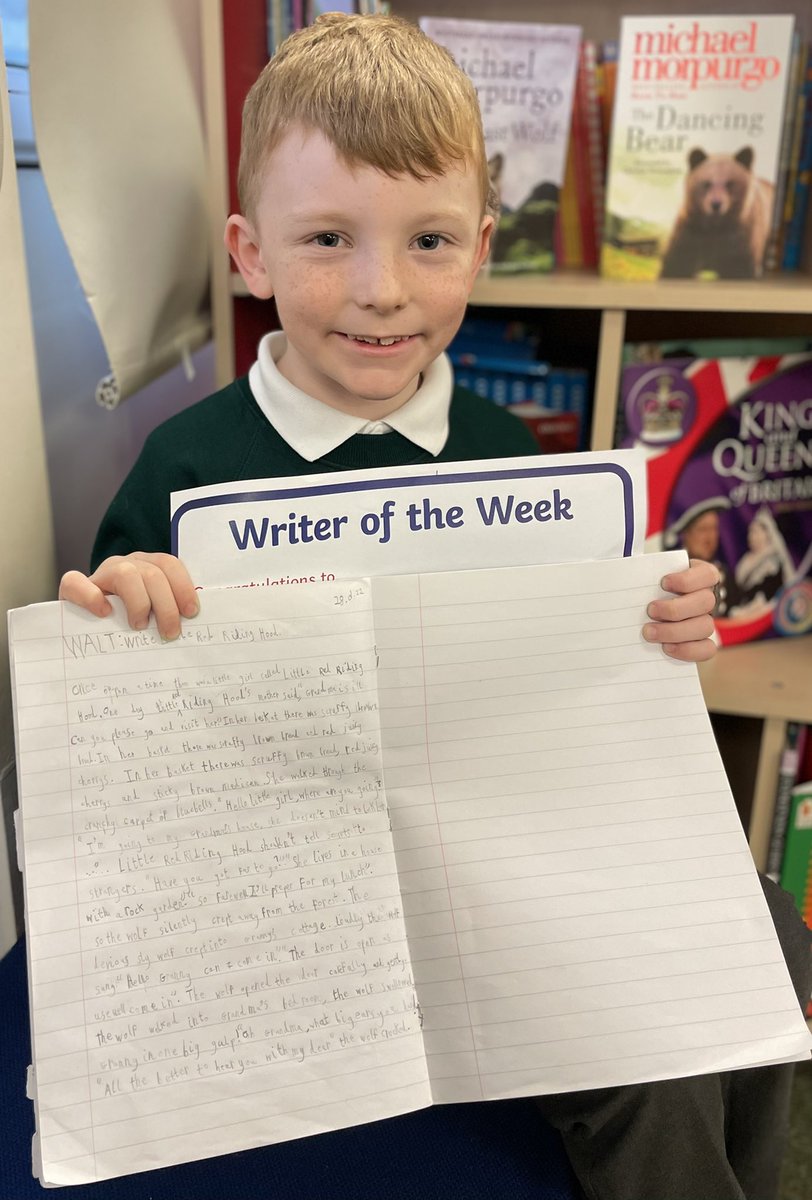 michael
morpurgo
michael
morpurgo
The Dancing
Bear
Wolf
KINGS
and
QUEENS
of BRITAIN
Writer of the Week
Congratulations to
WALT: write the Red Riding Hood.
Once a time little girl called Little Red Riding
Hood. One day Little red Riding Hood's mother said, is ill
Can you please go and visit her". In her there was scruffy
In her there was scruffy brown bread and red juicy
cherrys. In her basket there was scruffy brown bread, red juicy
cherrys and sticky brown She walked through the
crunchy carpet of bluebells. "Hello little girl, where are you going"?
"I'm going to my house, she doesn't mind
.... Little Red Riding Hood shouldn't tell secrets to
strangers. "Have you got far to go?" "She lives in a house
with a rock garden." so farewell I'll for my lunch".
so the wolf silently crept away from the forest. The
devious sly wolf crept into cottage. Loudly the wolf
sang "Hello Granny can I come in". "The door is open
come in". The wolf opened the door carefully and
the wolf walked into Grandma's bedroom, the wolf swallowed
in one big gulp! "oh Grandma, what big ears you
"All the better to hear you with my dear" the wolf